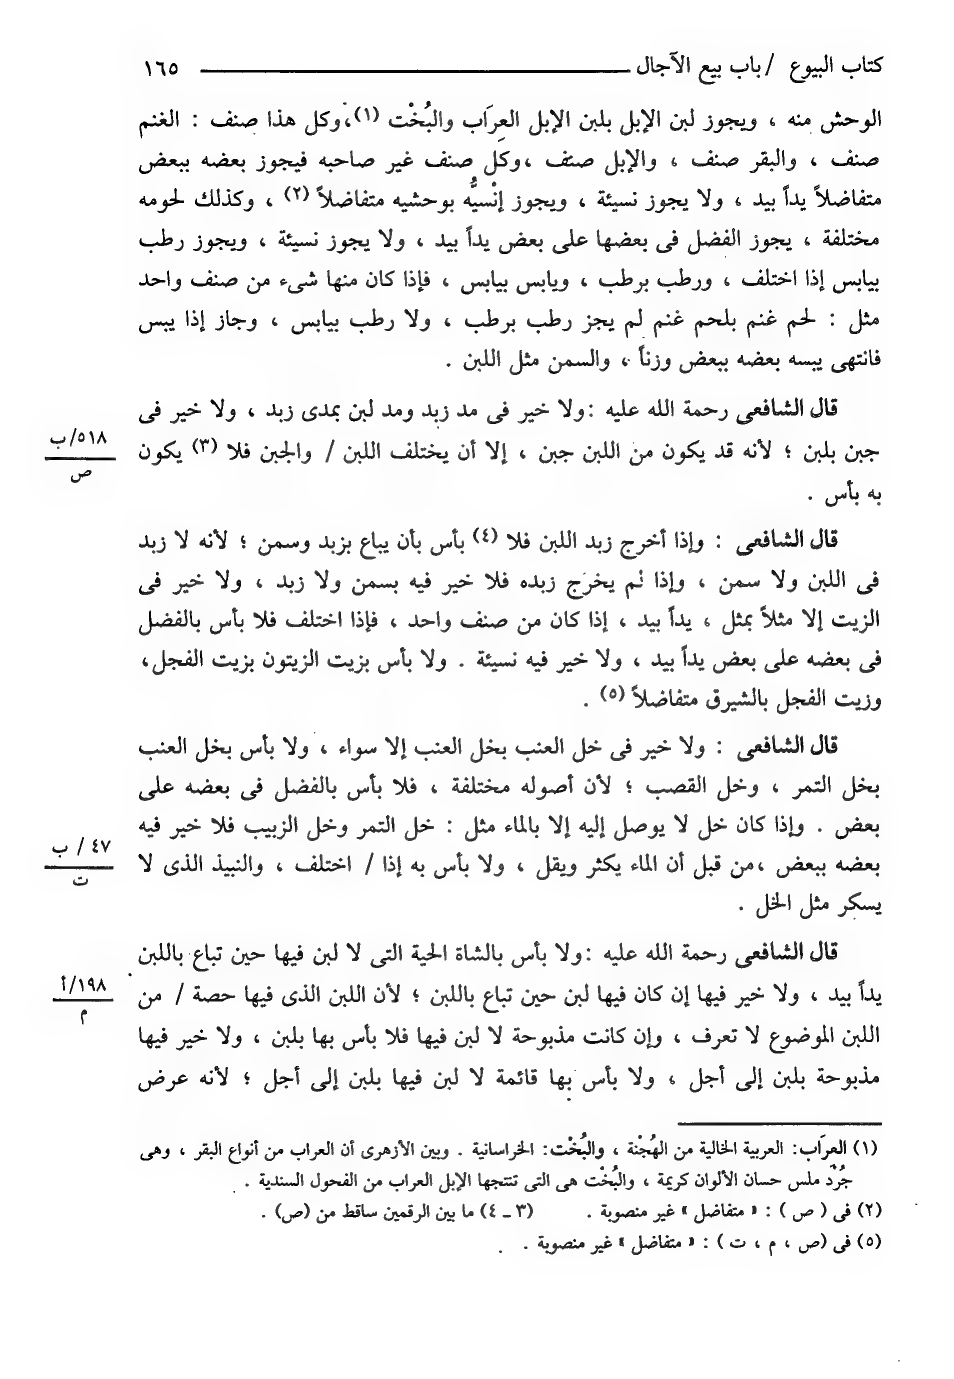 كتاب البيوع / باب بيع الآجال ١٦٥
الوحش منه ، ويجوز لبن الإبل بلبن الإبل العِرَاب والبُخْت (١)، وكل هذا صنف : الغنم
صنف ، والبقر صنف ، والإبل صنف ،وكل صنف غير صاحبه فيجوز بعضه ببعض
متفاضلاً يداً بيد ، ولا يجوز نسيئة ، ويجوز إنْسيُّه بوحشيه متفاضلاً (٢) ، وكذلك لحومه
مختلفة ، يجوز الفضل فى بعضها على بعض يداً بيد ، ولا يجوز نسيئة ، ويجوز رطب
بيابس إذا اختلف ، ورطب برطب ، ويابس بيابس ، فإذا كان منها شىء من صنف واحد
مثل : لحم غنم بلحم غنم لم يجز رطب برطب ، ولا رطب بيابس ، وجاز إذا يبس
فانتهى يبسه بعضه ببعض وزناً ، والسمن مثل اللبن .
قال الشافعى رحمة الله عليه :ولا خير فى مد زبد ومد لبن بمدى زبد ، ولا خير فى
جبن بلبن ؛ لأنه قد يكون من اللبن جبن ، إلا أن يختلف اللبن / والجبن فلا (٣) يكون
به بأس .
٥١٨/ب
ص
قال الشافعى : وإذا أخرج زبد اللبن فلا (٤) بأس بأن يباع بزبد وسمن ؛ لأنه لا زبد
فى اللبن ولا سمن ، وإذا لم يخرج زبده فلا خير فيه بسمن ولا زبد ، ولا خير فى
الزيت إلا مثلاً بمثل ، يداً بيد ، إذا كان من صنف واحد ، فإذا اختلف فلا بأس بالفضل
فى بعضه على بعض يداً بيد ، ولا خير فيه نسيئة . ولا بأس بزيت الزيتون بزيت الفجل،
وزيت الفجل بالشيرق متفاضلاً (٥) .
قال الشافعى : ولا خير فى خل العنب بخل العنب إلا سواء ، ولا بأس بخل العنب
بخل التمر ، وخل القصب ؛ لأن أصوله مختلفة ، فلا بأس بالفضل فى بعضه على
بعض . وإذا كان خل لا يوصل إليه إلا بالماء مثل : خل التمر وخل الزبيب فلا خير فيه
بعضه ببعض ،من قبل أن الماء يكثر ويقل ، ولا بأس به إذا / اختلف ، والنبيذ الذى لا
يسكر مثل الخل .
٤٧ / ب
ت
قال الشافعى رحمة الله عليه :ولا بأس بالشاة الحية التى لا لبن فيها حين تباع باللبن
يداً بيد ، ولا خير فيها إن كان فيها لبن حين تباع باللبن ؛ لأن اللبن الذى فيها حصة / من
اللبن الموضوع لا تعرف ، وإن كانت مذبوحة لا لبن فيها فلا بأس بها بلبن ، ولا خير فيها
مذبوحة بلبن إلى أجل ، ولا بأس بها قائمة لا لبن فيها بلبن إلى أجل ؛ لأنه عرض
١٩٨/أ
م
(١) العِرَاب: العربية الخالية من الهُجْنة ، والبُخْت: الخراسانية . وبين الأزهرى أن العراب من أنواع البقر ، وهى
جُرْد ملس حسان الألوان كريمة ، والبُخْت هى التى تنتجها الإبل العراب من الفحول السندية .
(٢) فى ( ص ) : « متفاضل » غير منصوبة . (٣ ـ ٤) ما بين الرقمين ساقط من (ص) .
(٥) فى (ص ، م ، ت ) : « متفاضل » غير منصوبة .